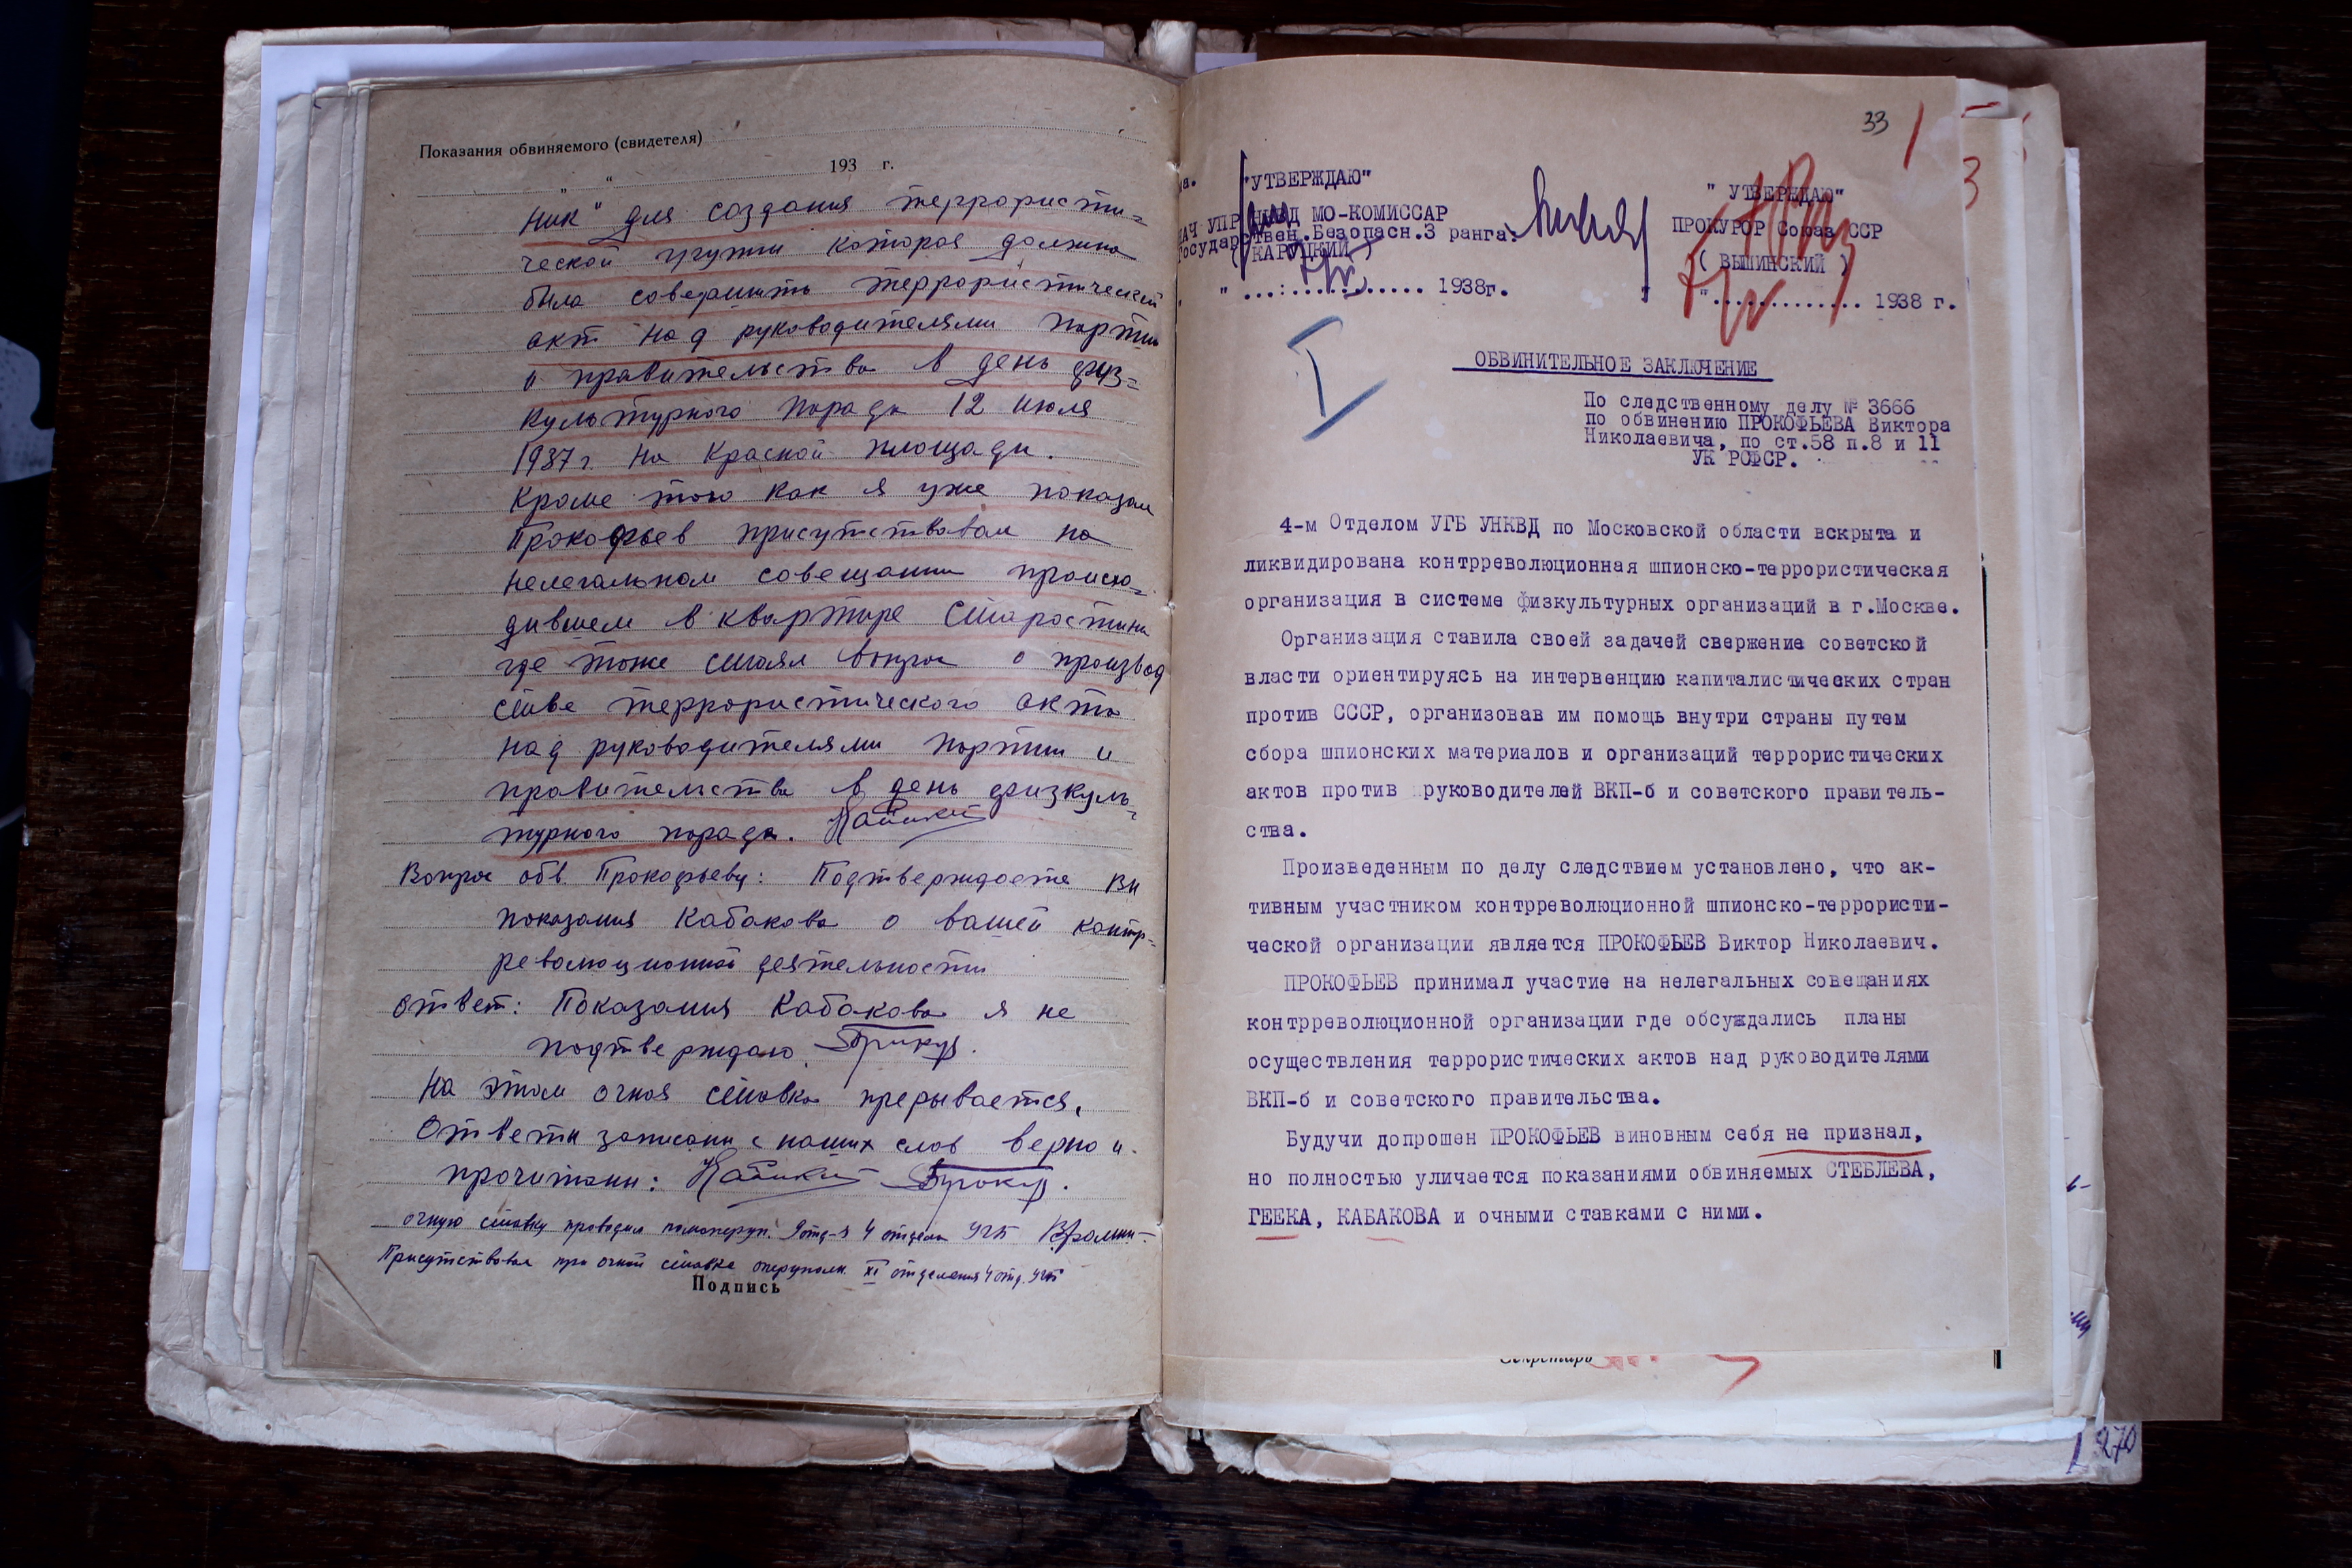 Показания обвиняемого (свидетеля)
„ “ 193 г.
ник" для создания террористи=
ческой группы которая должна
была совершить террористический
акт над руководителями партии
и правительства в день физ=
культурного парада 12 июля
1937 г. на Красной площади.
Кроме того как я уже показал
Прокофьев присутствовал на
нелегальном совещании происхо-
дившем в квартире Старостина
где тоже стоял вопрос о производ
стве террористического акта
над руководителями партии и
правительства в день физкуль-
турного парада.
Вопрос обв. Прокофьеву: Подтверждаете вы
показания Кабакова о вашей контр-
революционной деятельности
Ответ: Показания Кабакова я не
подтверждаю.
На этом очная ставка прерывается.
Ответы записаны с наших слов верно и
прочитаны:
очную ставку проводил помоперуп. 9 отд-я 4 отдела УГБ
Присутствовал при очной ставке оперуполн. XI отделения 4 отд. УГБ
Подпись
33
"УТВЕРЖДАЮ"
НАЧ УПР НКВД МО-КОМИССАР
Государствен.Безопасн.3 ранга:
( КАРУЦКИЙ )
" ...:........... 1938г.
" УТВЕРЖДАЮ"
ПРОКУРОР Союза ССР
( ВЫШИНСКИЙ )
"............. 1938 г.
I
ОБВИНИТЕЛЬНОЕ ЗАКЛЮЧЕНИЕ
По следственному делу № 3666
по обвинению ПРОКОФЬЕВА Виктора
Николаевича, по ст.58 п.8 и 11
УК РСФСР.
4-м Отделом УГБ УНКВД по Московской области вскрыта и
ликвидирована контрреволюционная шпионско-террористическая
организация в системе физкультурных организаций в г.Москве.
Организация ставила своей задачей свержение советской
власти ориентируясь на интервенцию капиталистических стран
против СССР, организовав им помощь внутри страны путем
сбора шпионских материалов и организаций террористических
актов против руководителей ВКП-б и советского правитель-
ства.
Произведенным по делу следствием установлено, что ак-
тивным участником контрреволюционной шпионско-террористи-
ческой организации является ПРОКОФЬЕВ Виктор Николаевич.
ПРОКОФЬЕВ принимал участие на нелегальных совещаниях
контрреволюционной организации где обсуждались планы
осуществления террористических актов над руководителями
ВКП-б и советского правительства.
Будучи допрошен ПРОКОФЬЕВ виновным себя не признал,
но полностью уличается показаниями обвиняемых СТЕБЛЕВА,
ГЕЕКА, КАБАКОВА и очными ставками с ними.
Секретарь
270